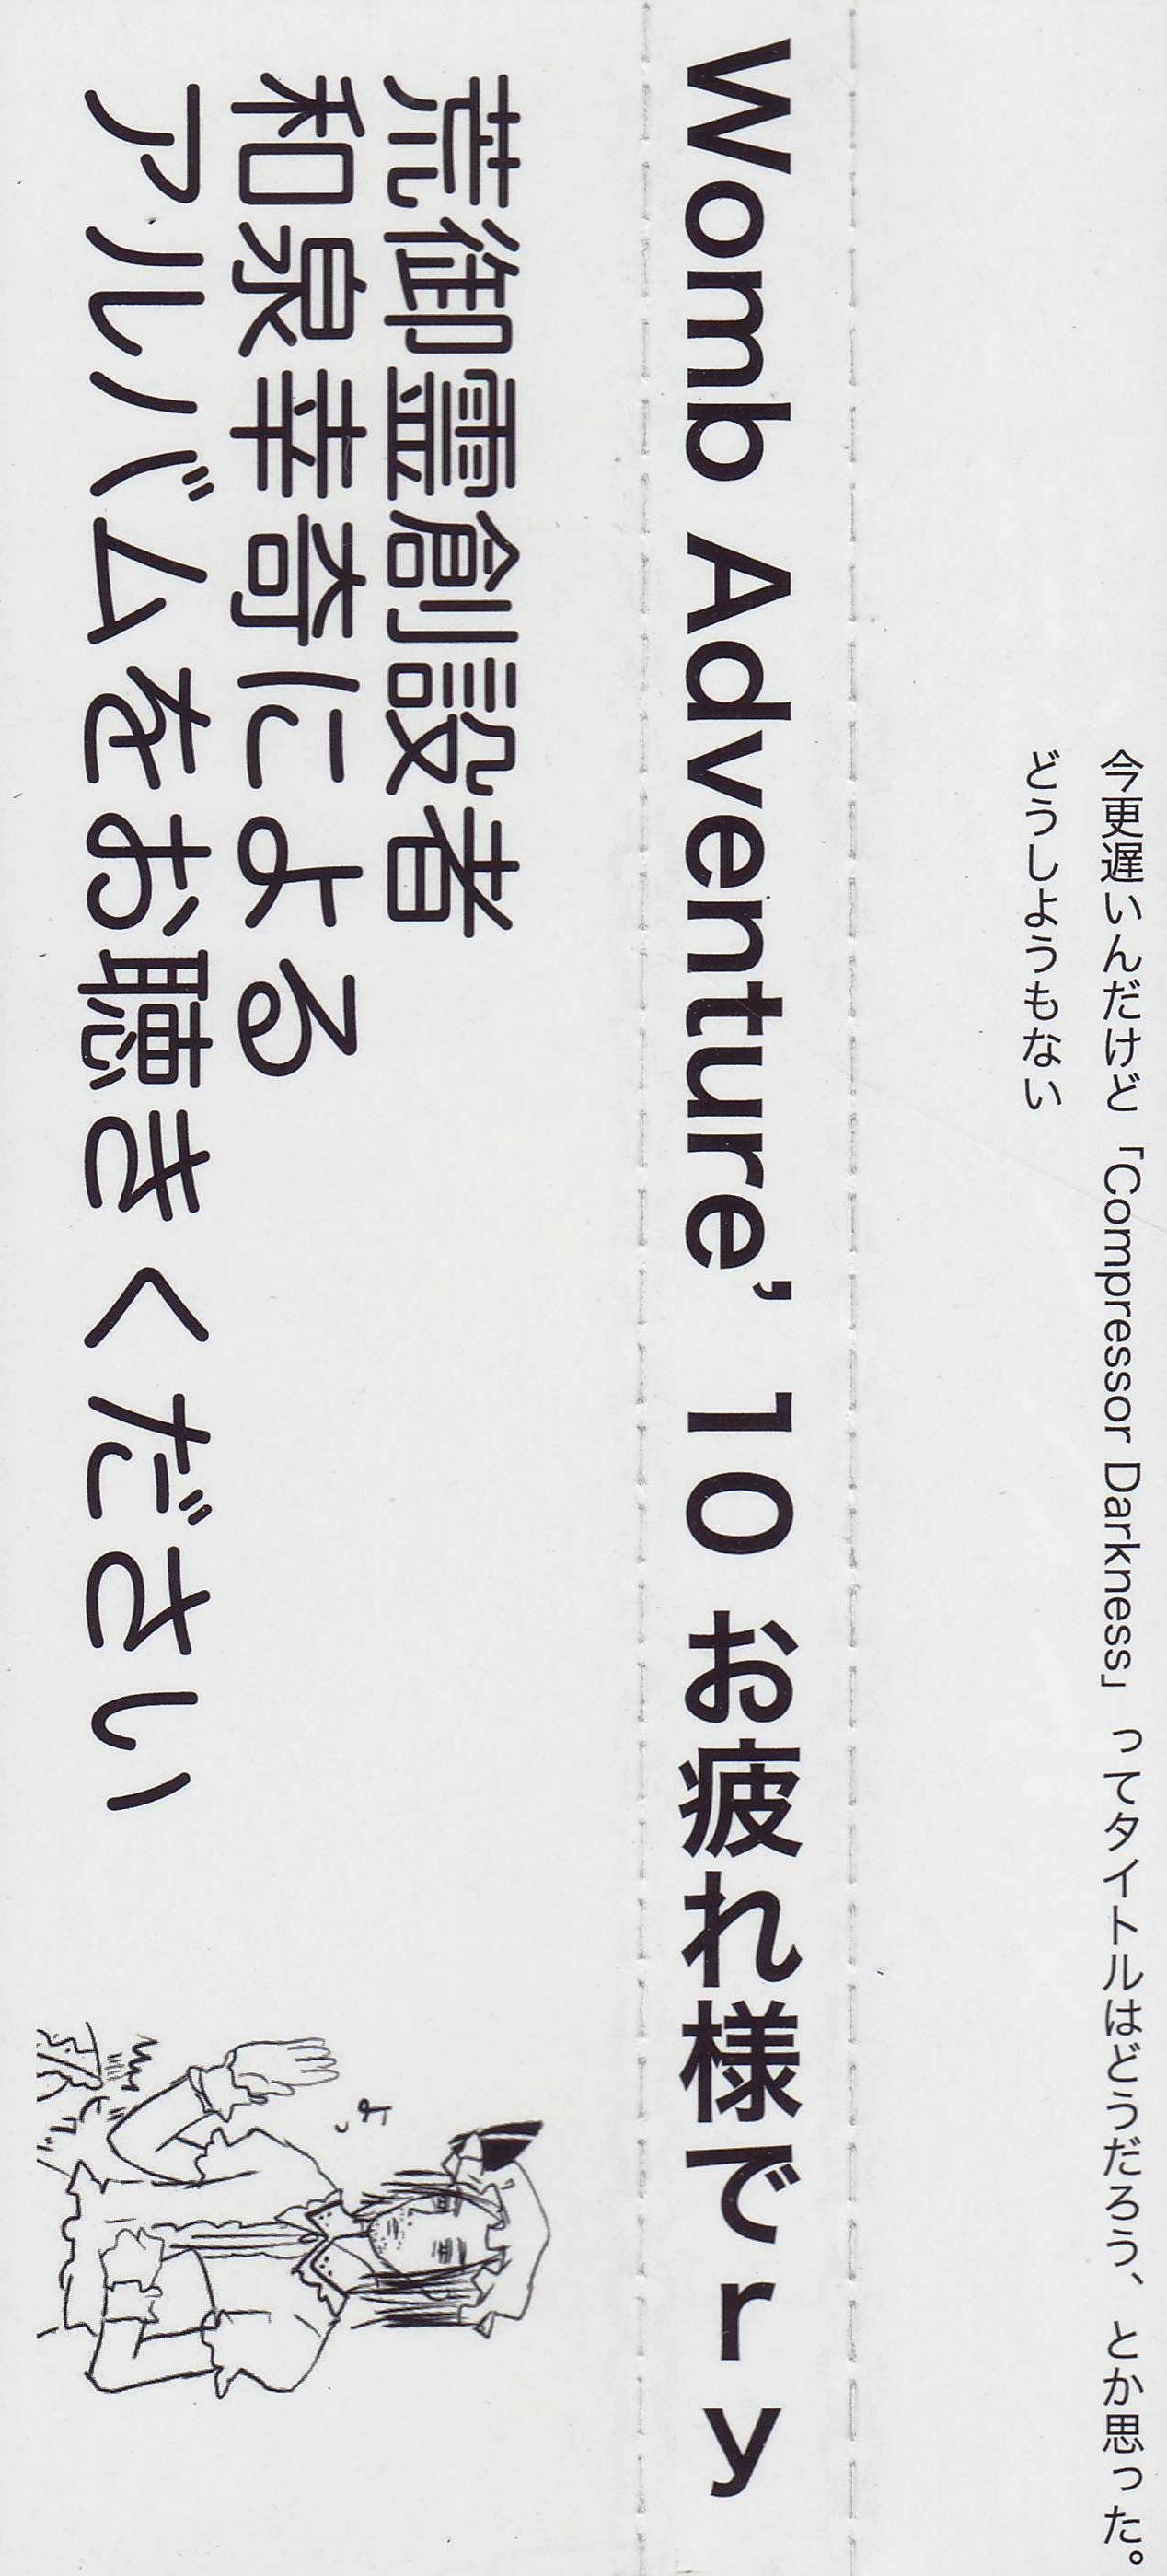 今更遅いんだけど「Compressor Darkness」ってタイトルはどうだろう、とか思った。
どうしようもない
Womb Adventure’10 お疲れ様でｒｙ
荒御霊創設者
和泉幸奇による
アルバムをお聴きください
よっ